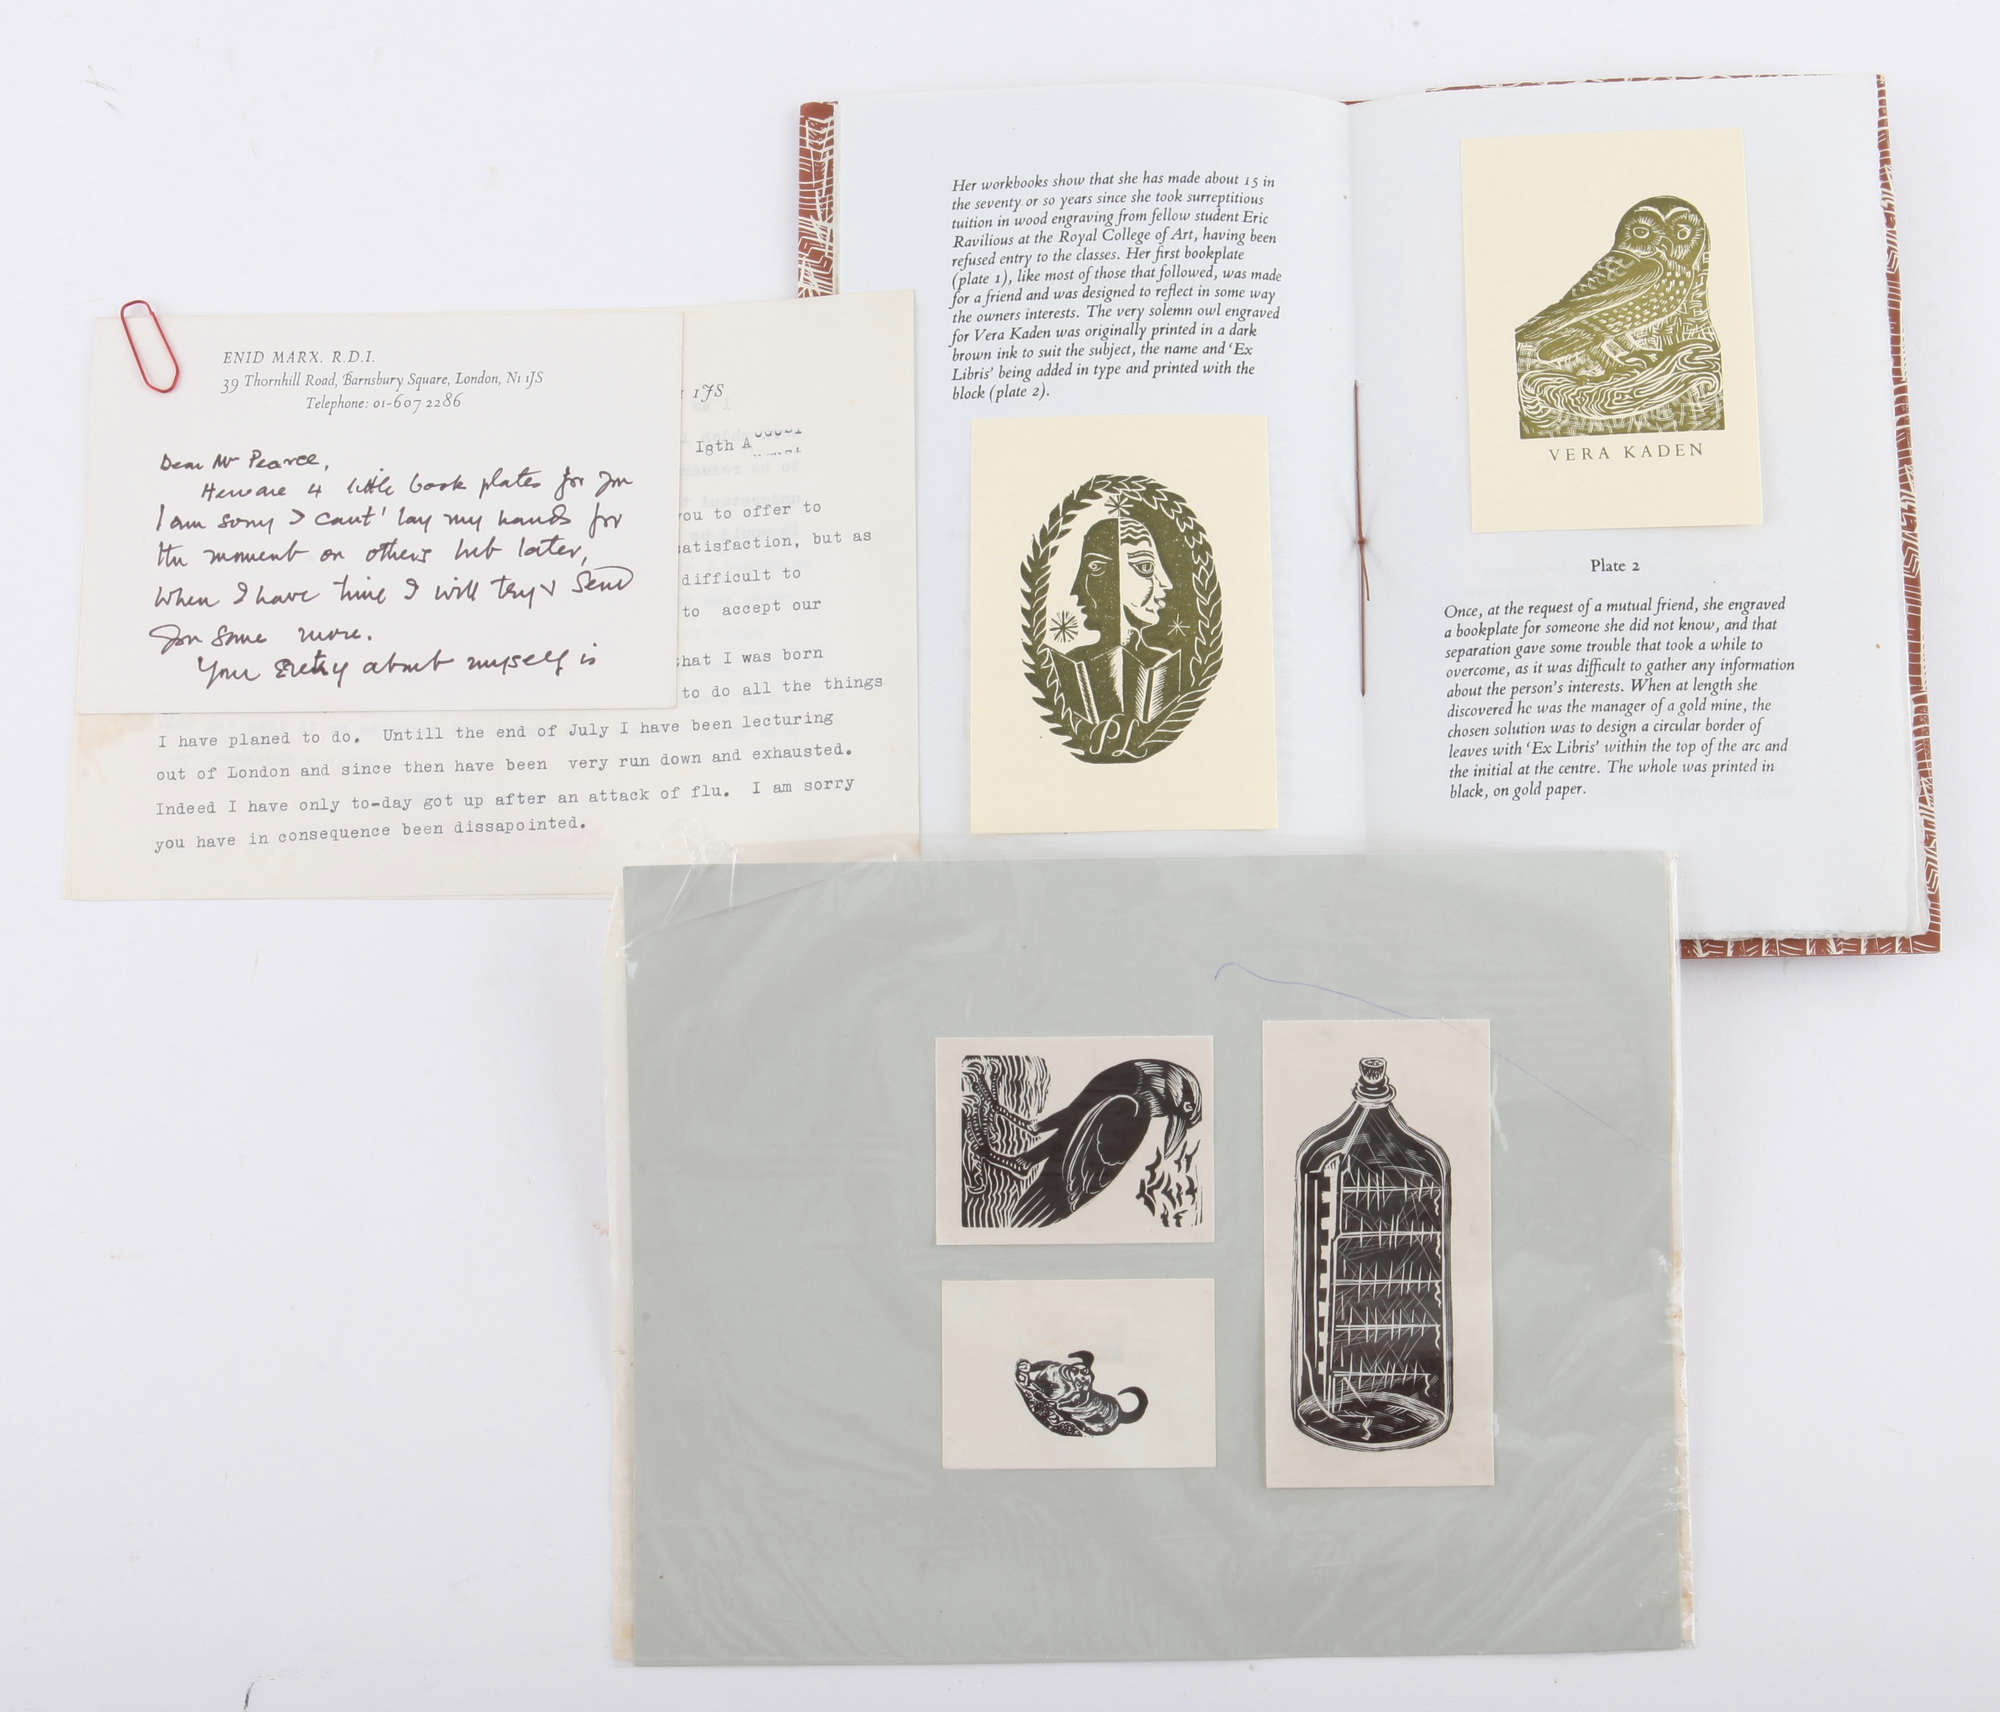 ENID MARX. R.D.I.
39 Thornhill Road, Barnsbury Square, London, N1 1JS
Telephone: 01-607 2286
Dear Mr Pearce,
Here are 4 little book plates for you
I am sorry I cant' lay my hands for
the moment on others but later,
when I have time I will try & send
you some more.
Your entry about myself is
1 1JS
18th A
you to offer to
satisfaction, but as
difficult to
to accept our
that I was born
to do all the things
I have planed to do. Untill the end of July I have been lecturing
out of London and since then have been very run down and exhausted.
Indeed I have only to-day got up after an attack of flu. I am sorry
you have in consequence been dissapointed.
Her workbooks show that she has made about 15 in
the seventy or so years since she took surreptitious
tuition in wood engraving from fellow student Eric
Ravilious at the Royal College of Art, having been
refused entry to the classes. Her first bookplate
(plate 1), like most of those that followed, was made
for a friend and was designed to reflect in some way
the owners interests. The very solemn owl engraved
for Vera Kaden was originally printed in a dark
brown ink to suit the subject, the name and 'Ex
Libris' being added in type and printed with the
block (plate 2).
PL
VERA KADEN
Plate 2
Once, at the request of a mutual friend, she engraved
a bookplate for someone she did not know, and that
separation gave some trouble that took a while to
overcome, as it was difficult to gather any information
about the person's interests. When at length she
discovered he was the manager of a gold mine, the
chosen solution was to design a circular border of
leaves with 'Ex Libris' within the top of the arc and
the initial at the centre. The whole was printed in
black, on gold paper.